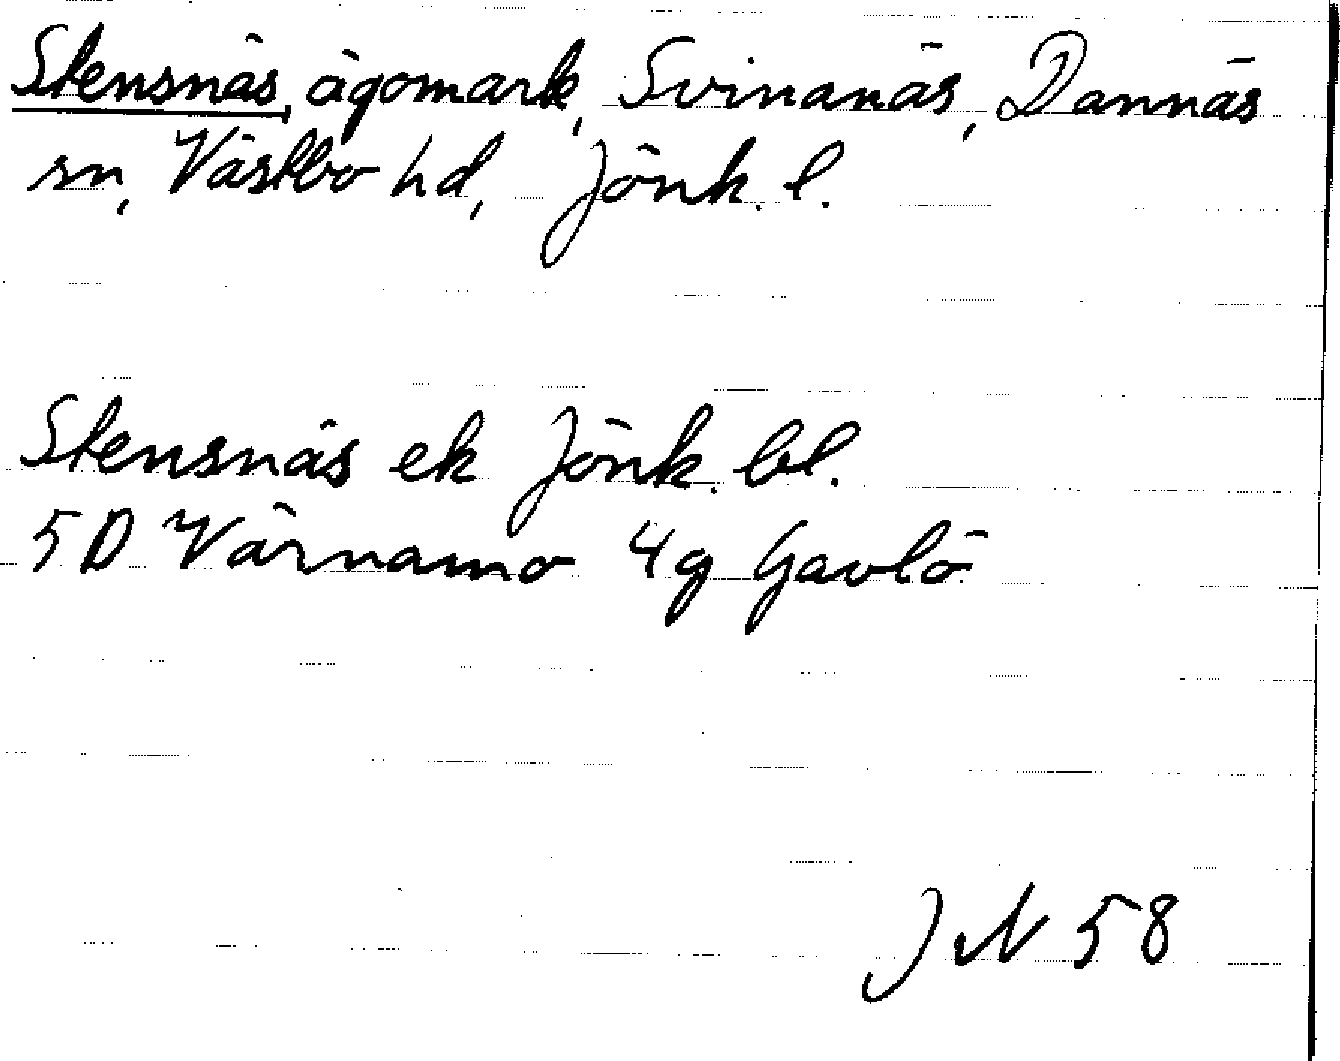 Stensnäs, ägomark, Svinanäs, Dannäs
sn, Västbo hd, Jönk. l.
Stensnäs ek Jönk. bl.
5D Värnamo 4g Gavlö
JN 58